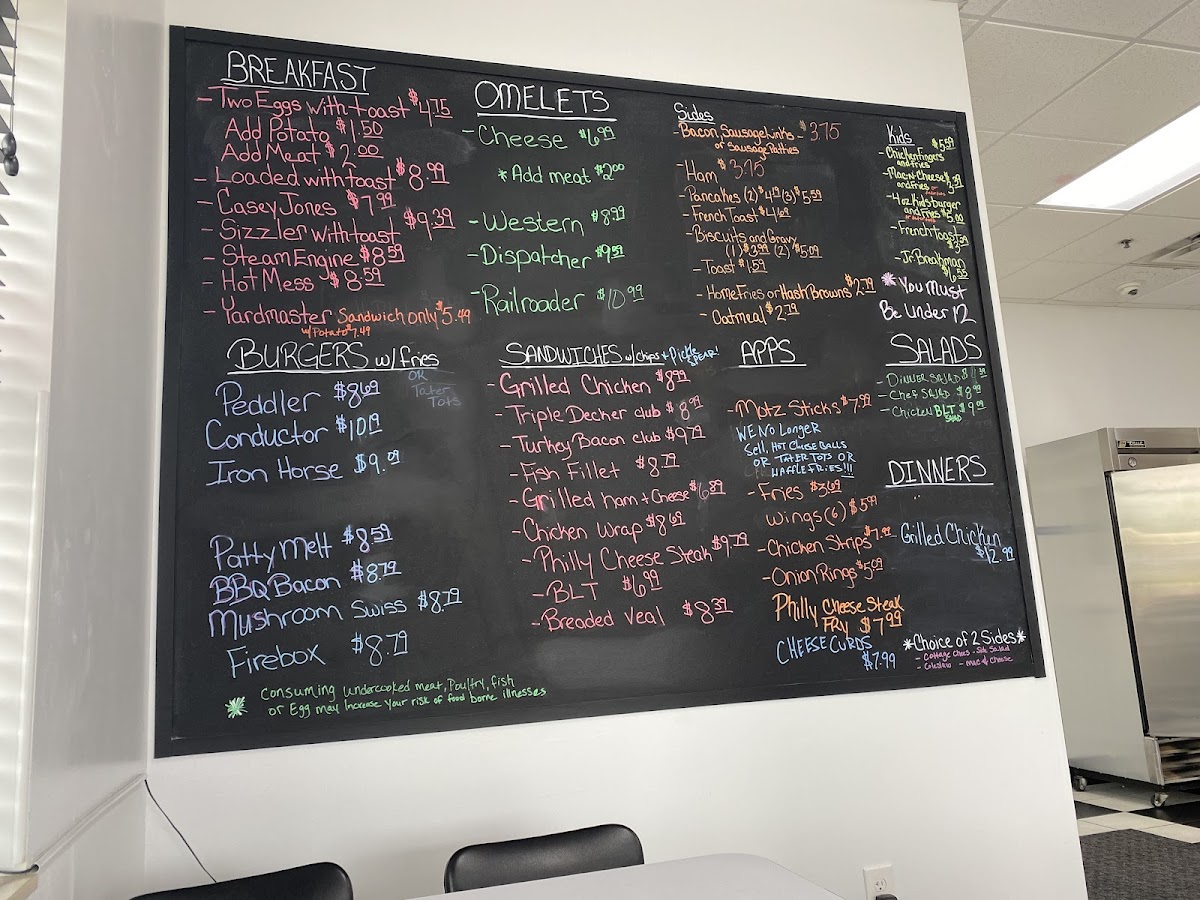 BREAKFAST
- Two Eggs with toast $4.75
Add Potato $1.50
Add Meat $2.00
- Loaded with toast $8.99
- Casey Jones $7.99
- Sizzler with toast $9.39
- Steam Engine $8.59
- Hot Mess - $8.59
- Yardmaster Sandwich only $5.49
w/Potato $7.49
BURGERS w/fries
OR
Tater
Tots
Peddler $8.69
Conductor $10.19
Iron Horse $9.09
Patty Melt $8.59
BBQ Bacon $8.79
Mushroom Swiss $8.79
Firebox $8.79
Consuming undercooked meat, Poultry, fish
or Egg may Increase your risk of food borne illnesses
OMELETS
- Cheese $6.99
* Add meat $2.00
- Western $8.99
- Dispatcher $9.59
- Railroader $10.99
SANDWICHES w/chips + Pickle
SPEAR!
- Grilled Chicken $8.99
- Triple Decker club $8.99
- Turkey Bacon club $9.79
- Fish Fillet $8.79
- Grilled ham + Cheese $6.89
- Chicken Wrap $8.69
- Philly Cheese Steak $9.79
- BLT $6.99
- Breaded Veal $8.39
Sides
- Bacon, Sausage Links - $3.75
or Sausage Patties
- Ham $3.75
- Pancakes (2) $4.19 (3) $5.59
- French Toast $4.69
- Biscuits and Gravy
(1) $3.99 (2) $5.09
- Toast $1.59
- Home Fries or Hash Browns $2.79
- Oatmeal $2.79
APPS
- Motz Sticks $7.99
WE No Longer
Sell, HOT CHEESE BALLS
OR TATER TOTS OR
WAFFLE FRIES!!!
- Fries $3.69
Wings (6) $5.99
- Chicken Strips $7.99
- Onion Rings $5.09
Philly Cheese Steak
FRY $7.99
CHEESE CURDS
$7.99
Kids
$5.59
- Chicken Fingers
and fries
- Mac-N-Cheese
and fries
- 4oz Kids burger
and Fries $5.00
- French toast
- Jr Breakman
$6.55
* You Must
Be under 12
SALADS
- DINNER SALAD
- Chef SALAD $8.99
- Chicken BLT $9.09
SALAD
DINNERS
Grilled Chicken
$12.99
*Choice of 2 Sides*
- Cottage Chees - Side Salad
- Coleslaw - Mac & Cheese